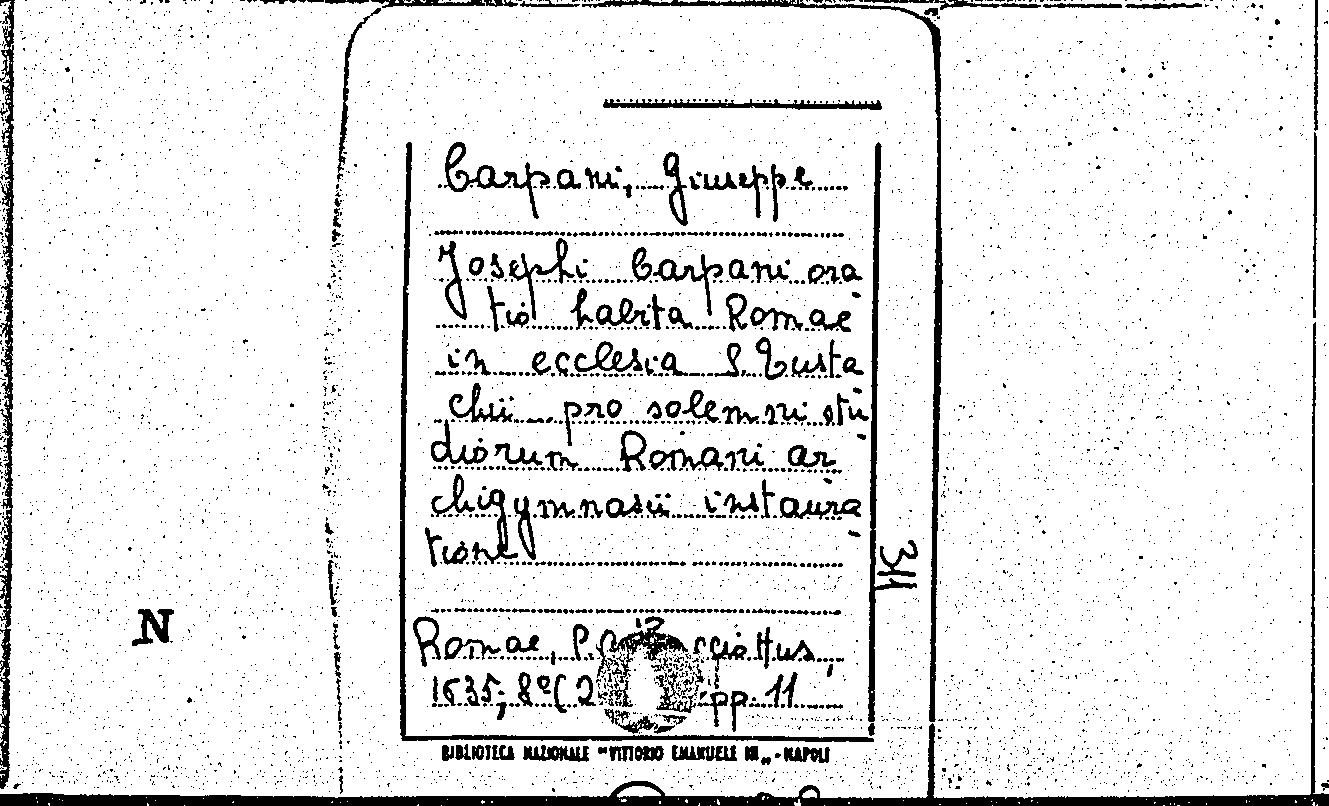 Carpani, Giuseppe
Josephi Carpani ora
tio habita Romae
in ecclesia S. Eusta
chii pro solemni stu
diorum Romani ar
chigymnasii instaura
tione
311
N
Romae,
1635; 8° (2 pp. 11
BIBLIOTECA NAZIONALE "VITTORIO EMANUELE III" - NAPOLI